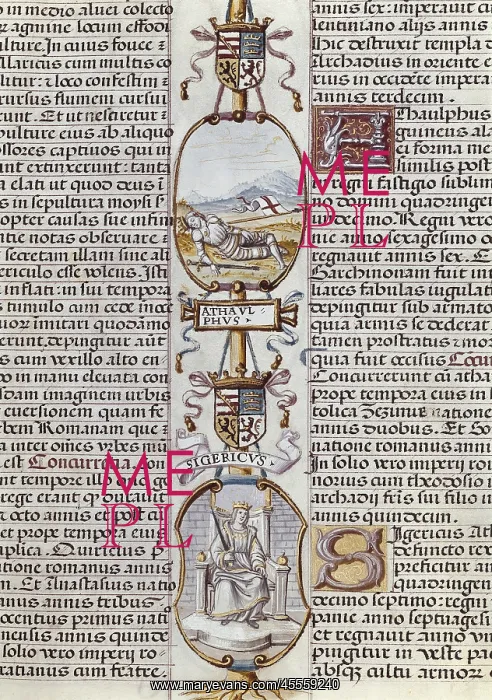 in medio aluei colecto
agmine locum effodi
ulture. In cuius fouee
Alaricus cum multis co
litur: loco confestim
rursus flumen cursui
runt. Et ut nesciretur
pulture eius ab aliquo
fossores captiuos qui in
ant extinxerunt: tanta
a elati ut quod deus i
is in sepultura moysi
opter causas sue infini
tie notas obseruare
secretam illam sine ali
periculo esse uolens. Isti
inflati: in sui tempora
tumulo cum cede inoce
imitari quodamo
depingitur aut
s cum uexillo alto en
o in manu eleuata con
dam imaginem urbis
euersionem quam fe
rbem Romanam que
inter omes urbes
est Concurre
nt tempore
rege erant
octo annis et
et prope tempora eius
plica.
tione romanus annis
n. Et Anastasius natio
mus annis tribus.
nocentius primus nati
nensis annis quinde
solio uero imperii ro
cum fratre.
ATHAVL
PHVS
SIGERICVS
annis sex: imperauit
lentiniano aliis annis
Hic destruxit templa
Archadius in oriente
rius in occidente impera
annis terdecim.
Athaulphus
guineus ala
ei forma me
similis post
regni fastigio sublim
domini quadringen
undecimo. Regni uero
sexagesimo
regnauit annis sex. E
Barchinonam fuit in
iares fabulas iugulati
depingitur sub armato
quia armis se dederat
tamen prostratus
quia fuit occisus Concu
Concurrerunt cum atha
prope tempora eius in
tolica Zezimus natione
annis duobus. Et Bo
natione romanus anni
In solio uero imperii ro
norius cum theodosio
archadii fris sui filio
annis quindecim.
Sigericus Ath
defuncto rex
preficitur an
quadringen
decimo septimo: regni
panie anno septuagesi
et regnauit anno
pingitur in ueste pac
absq; cultu armor
ME
PL
ME
PL
www.maryevans.com/45559240